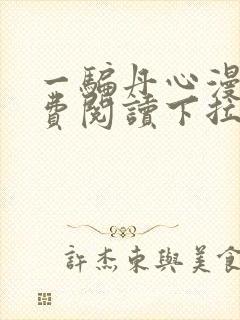 一騙丹心漫
費閱讀下拉
許杰東與美食